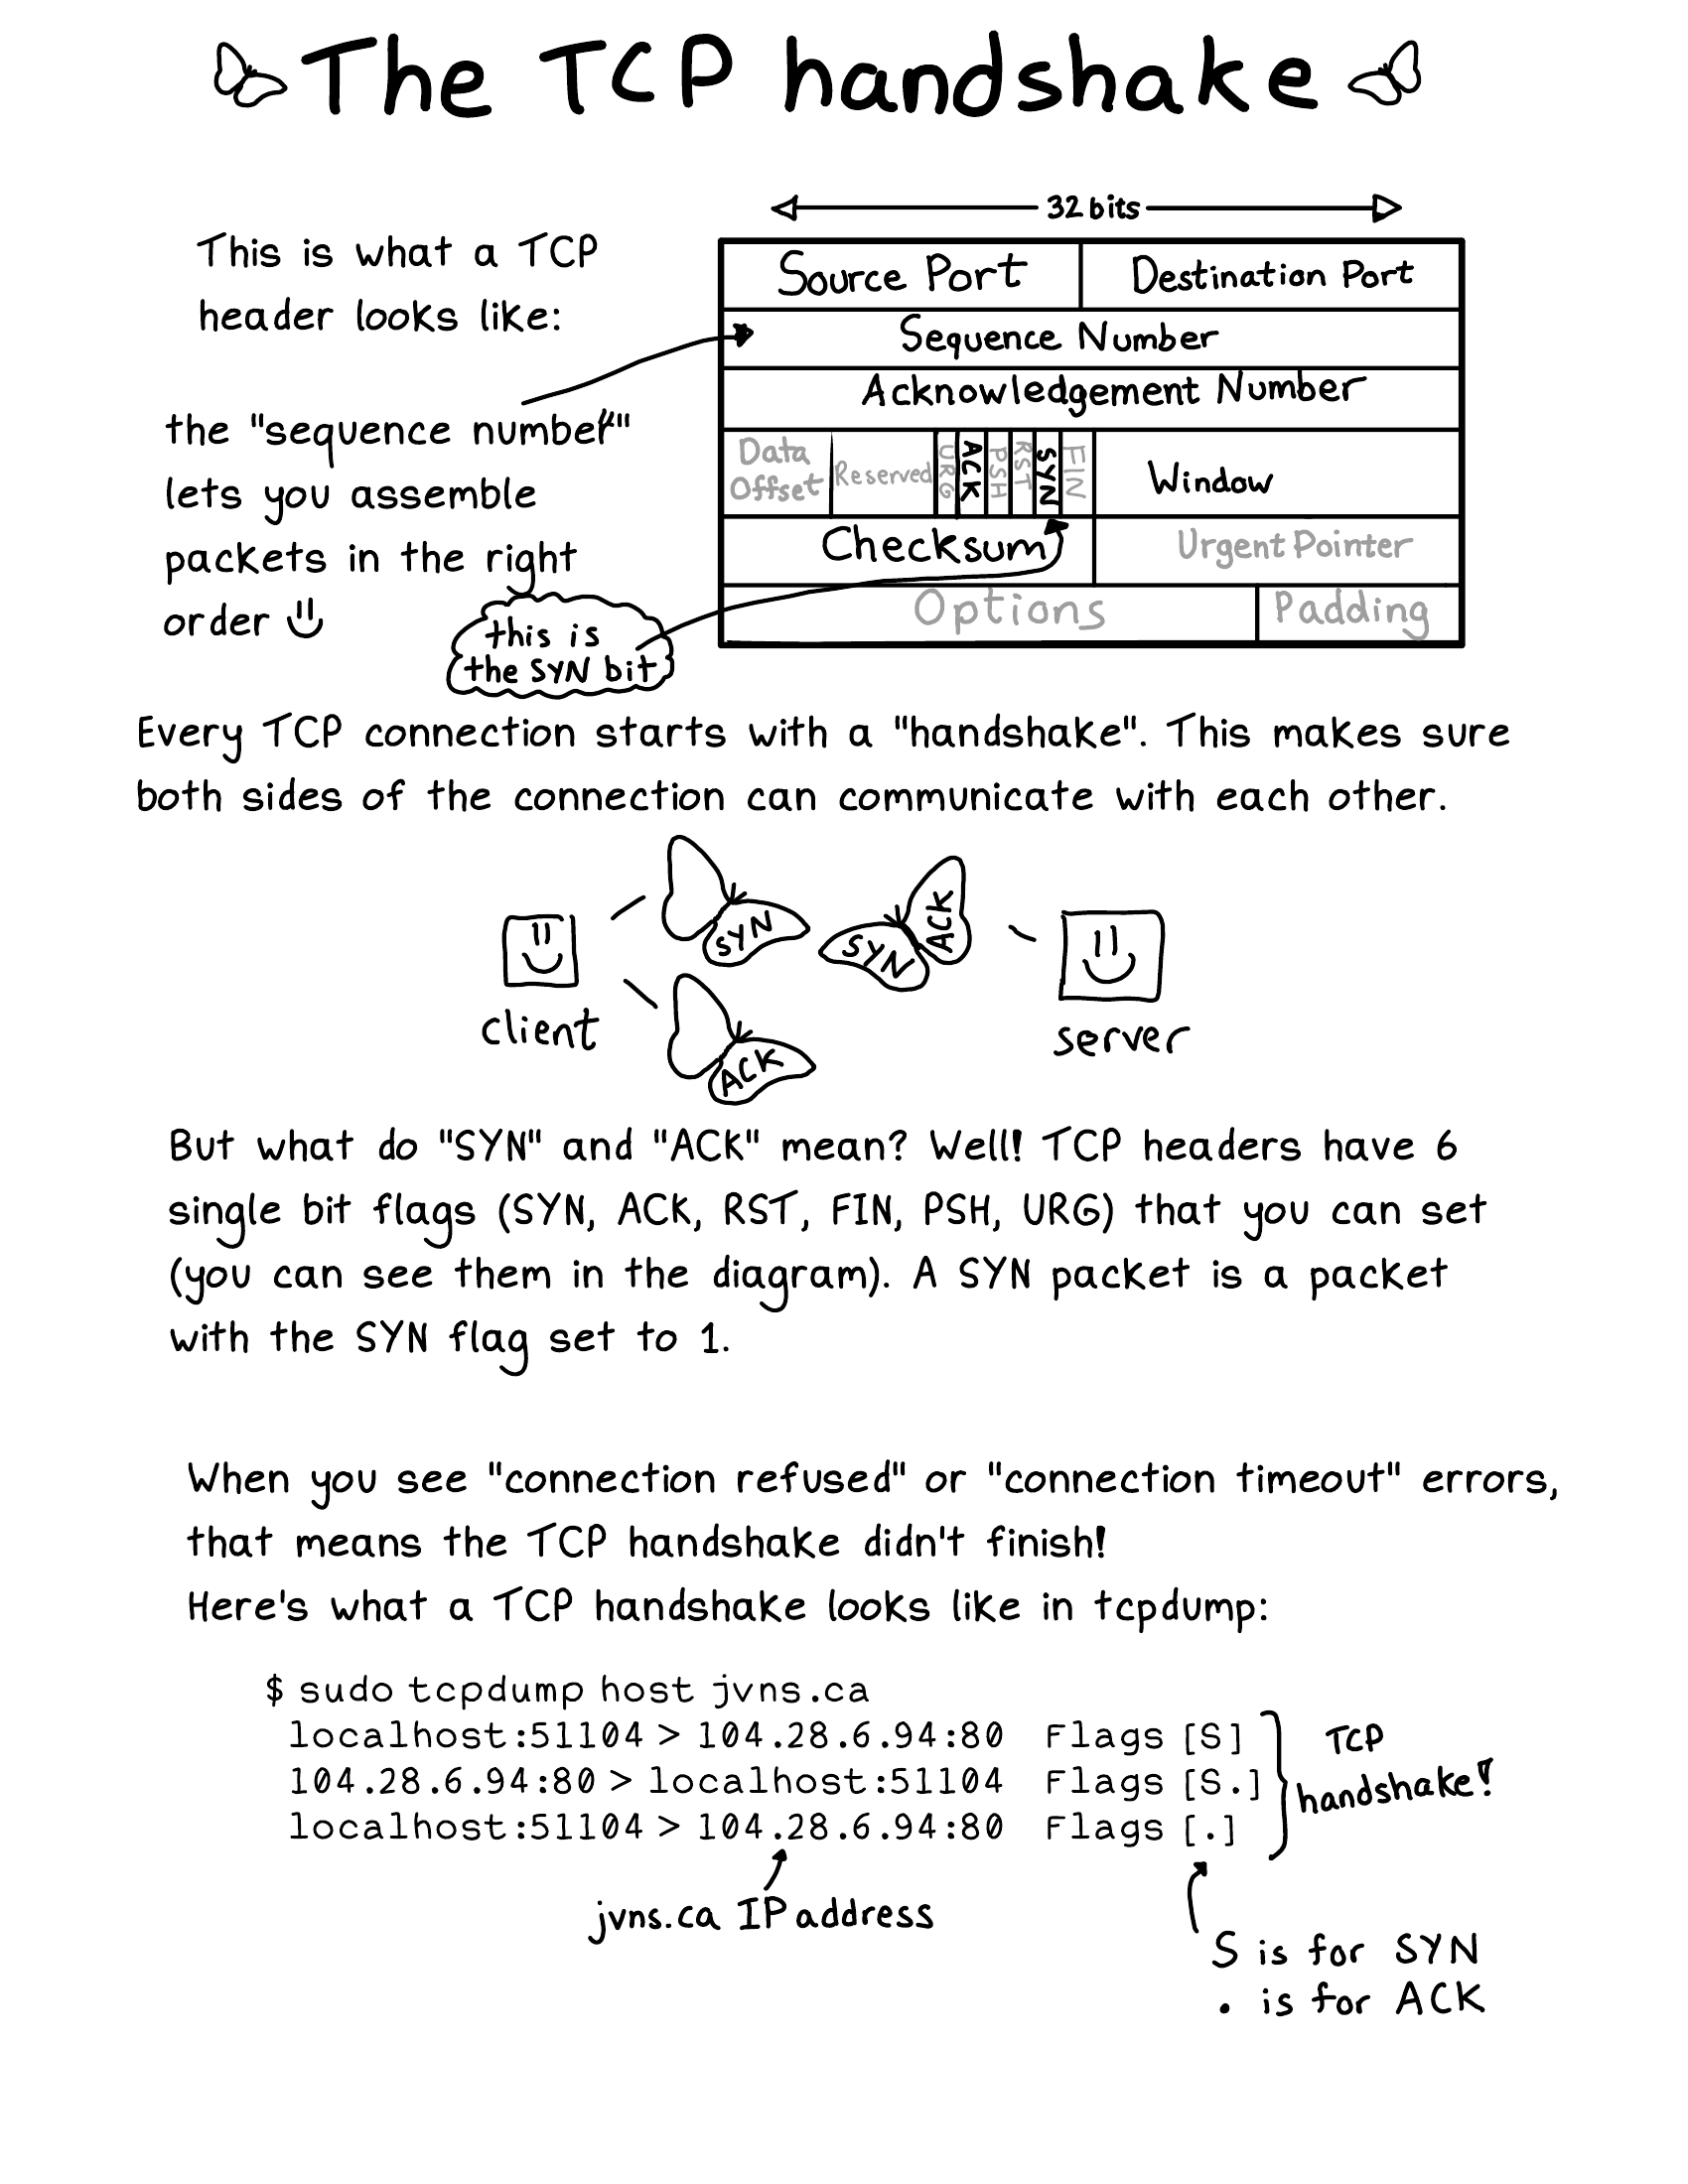 The TCP handshake
This is what a TCP
header looks like:
the "sequence number"
lets you assemble
packets in the right
order
this is
the SYN bit
32 bits
Source Port
Destination Port
Sequence Number
Acknowledgement Number
Data
Offset
Reserved
URG
ACK
PSH
RST
SYN
FIN
Window
Checksum
Urgent Pointer
Options
Padding
Every TCP connection starts with a "handshake". This makes sure
both sides of the connection can communicate with each other.
SYN
SYN ACK
client
ACK
server
But what do "SYN" and "ACK" mean? Well! TCP headers have 6
single bit flags (SYN, ACK, RST, FIN, PSH, URG) that you can set
(you can see them in the diagram). A SYN packet is a packet
with the SYN flag set to 1.
When you see "connection refused" or "connection timeout" errors,
that means the TCP handshake didn't finish!
Here's what a TCP handshake looks like in tcpdump:
$ sudo tcpdump host jvns.ca
localhost:51104 > 104.28.6.94:80 Flags [S]
104.28.6.94:80 > localhost:51104 Flags [S.]
localhost:51104 > 104.28.6.94:80 Flags [.]
TCP
handshake!
jvns.ca IP address
S is for SYN
. is for ACK